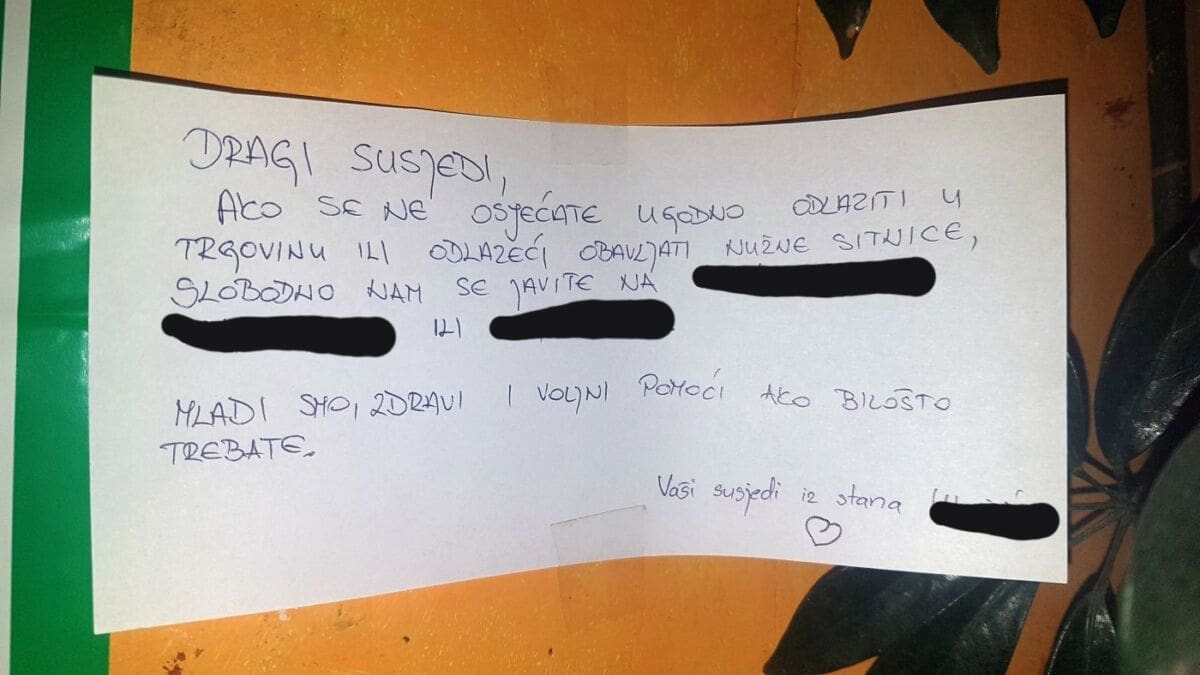 DRAGI SUSJEDI,
AKO SE NE OSJEĆATE UGODNO ODLAZITI U
TRGOVINU ILI ODLAZEĆI OBAVLJATI NUŽNE SITNICE,
SLOBODNO NAM SE JAVITE NA
ILI
MLADI SMO, ZDRAVI I VOLJNI POMOĆI AKO BILOŠTO
TREBATE.
Vaši susjedi iz stana